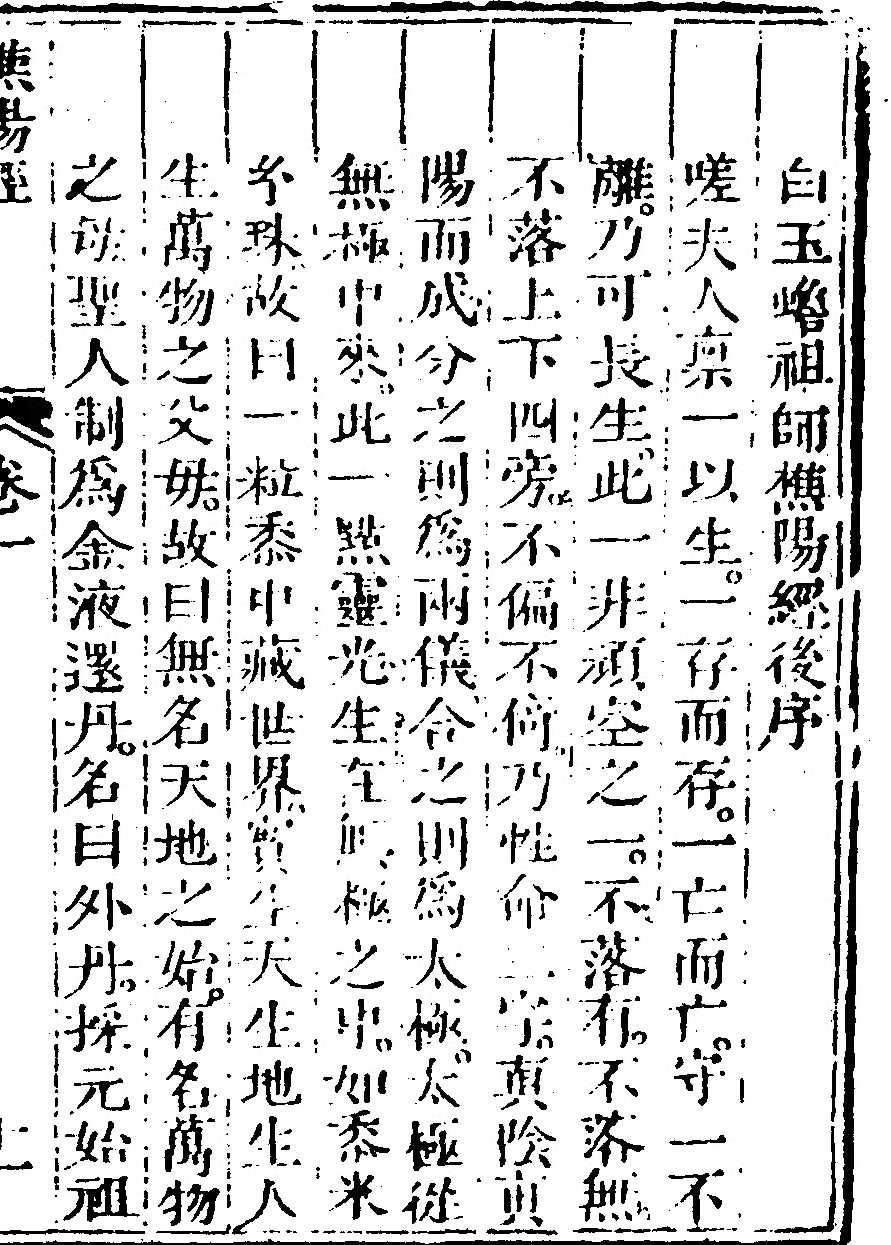 白玉蟾祖師樵陽經後序
嗟夫人禀一以生。一存而存。一亡而亡。守一不
離。乃可長生。此一非頑空之一。不落有。不落無。
不落上下四旁。不偏不倚。乃性命二字。眞陰眞
陽而成。分之則爲兩儀。合之則爲太極。太極從
無極中來。此一點靈光。生在無極之中。如黍米
玄珠。故曰一粒黍中藏世界。實生天生地生人
生萬物之父母。故曰無名天地之始。有名萬物
之母。聖人制爲金液還丹。名曰外丹。採元始祖
樵陽經 卷一 上